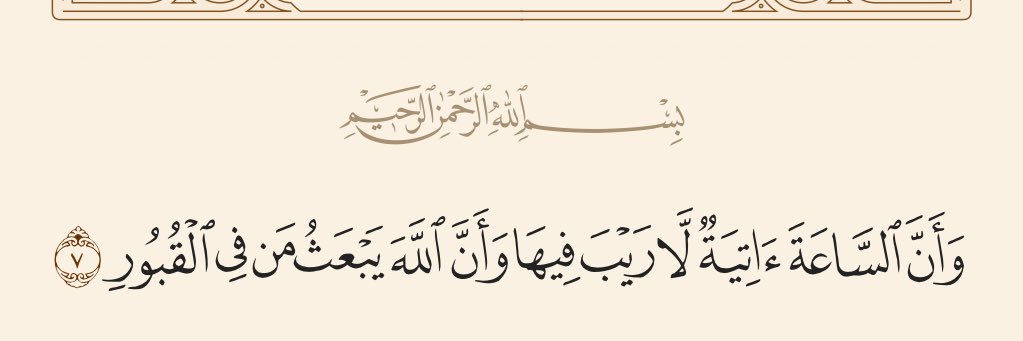 بِسْمِ ٱللَّهِ ٱلرَّحْمَٰنِ ٱلرَّحِيمِ
وَأَنَّ ٱلسَّاعَةَ ءَاتِيَةٌ لَّا رَيْبَ فِيهَا وَأَنَّ ٱللَّهَ يَبْعَثُ مَن فِى ٱلْقُبُورِ ٧